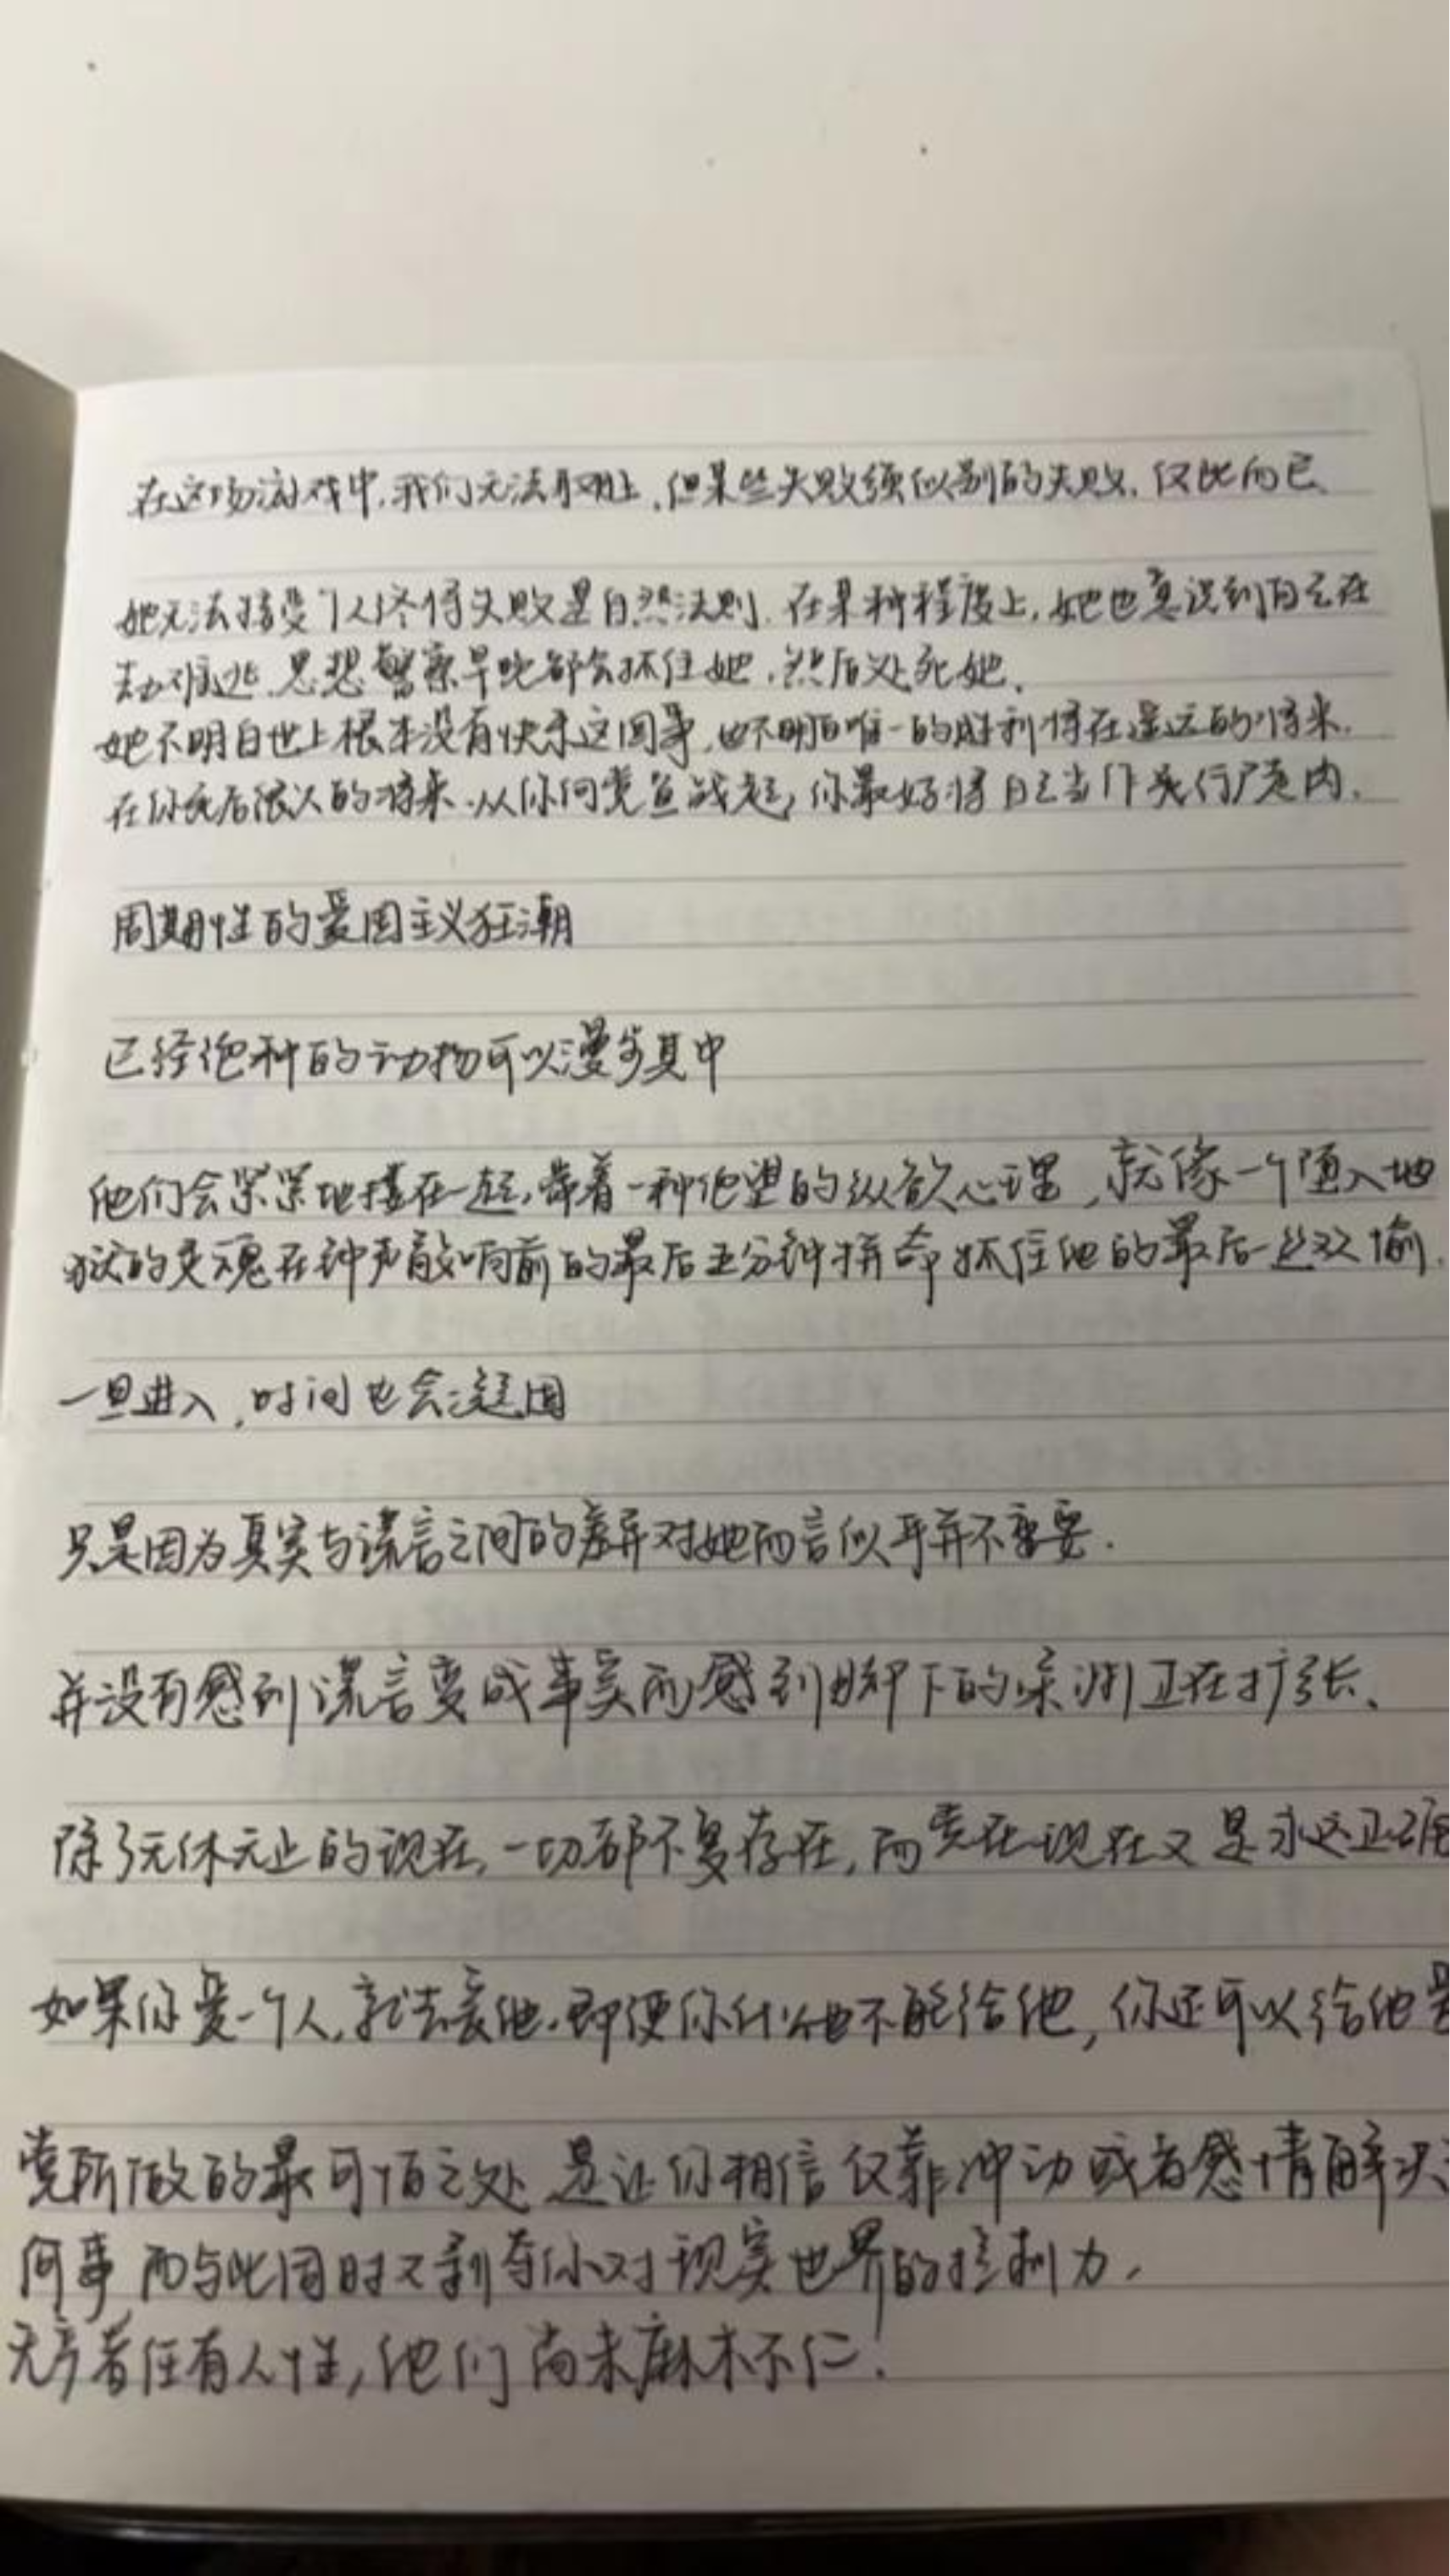 在这场游戏中,我们无法取胜,但某些失败强似别的失败,仅此而已.
她无法接受个人终将失败是自然法则.在某种程度上,她也意识到自己在
劫难逃.思想警察早晚都会抓住她,然后处死她.
她不明白世上根本没有快乐这回事,也不明白唯一的胜利将在遥远的将来.
在你死后很久的将来.从你向党宣战起,你最好将自己当作具行尸走肉.
周期性的爱国主义狂潮
已经绝种的动物可以漫步其中
他们会紧紧地搂在一起,带着一种绝望的纵欲心理,就像一个堕入地
狱的灵魂在钟声敲响前的最后五分钟拼命抓住他的最后一丝欢愉.
一旦进入,时间也会凝固
只是因为真实与谎言之间的差异对她而言似乎并不重要.
并没有感到谎言变成事实而感到脚下的深渊正在扩张.
除了无休无止的现在,一切都不复存在,而党在现在又是永远正确
如果你爱一个人,就去爱他.即便你什么也不能给他,你还可以给他
党所做的最可怕之处是让你相信仅靠冲动或者感情解决
何事而与此同时又剥夺你对现实世界的控制力.
无产者住有人性,他们尚未麻木不仁!